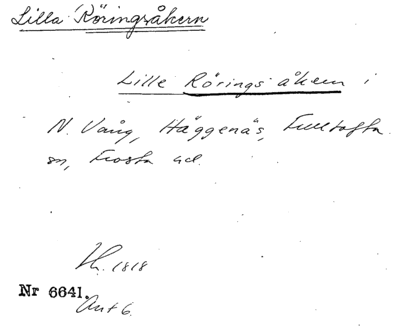 Lilla Röringsåkern
Lille Rörings åkern i
N. Vång, Häggenäs, Fulltofta
sn, Frosta hd.
1818
Nr 6641.
Akt 6.